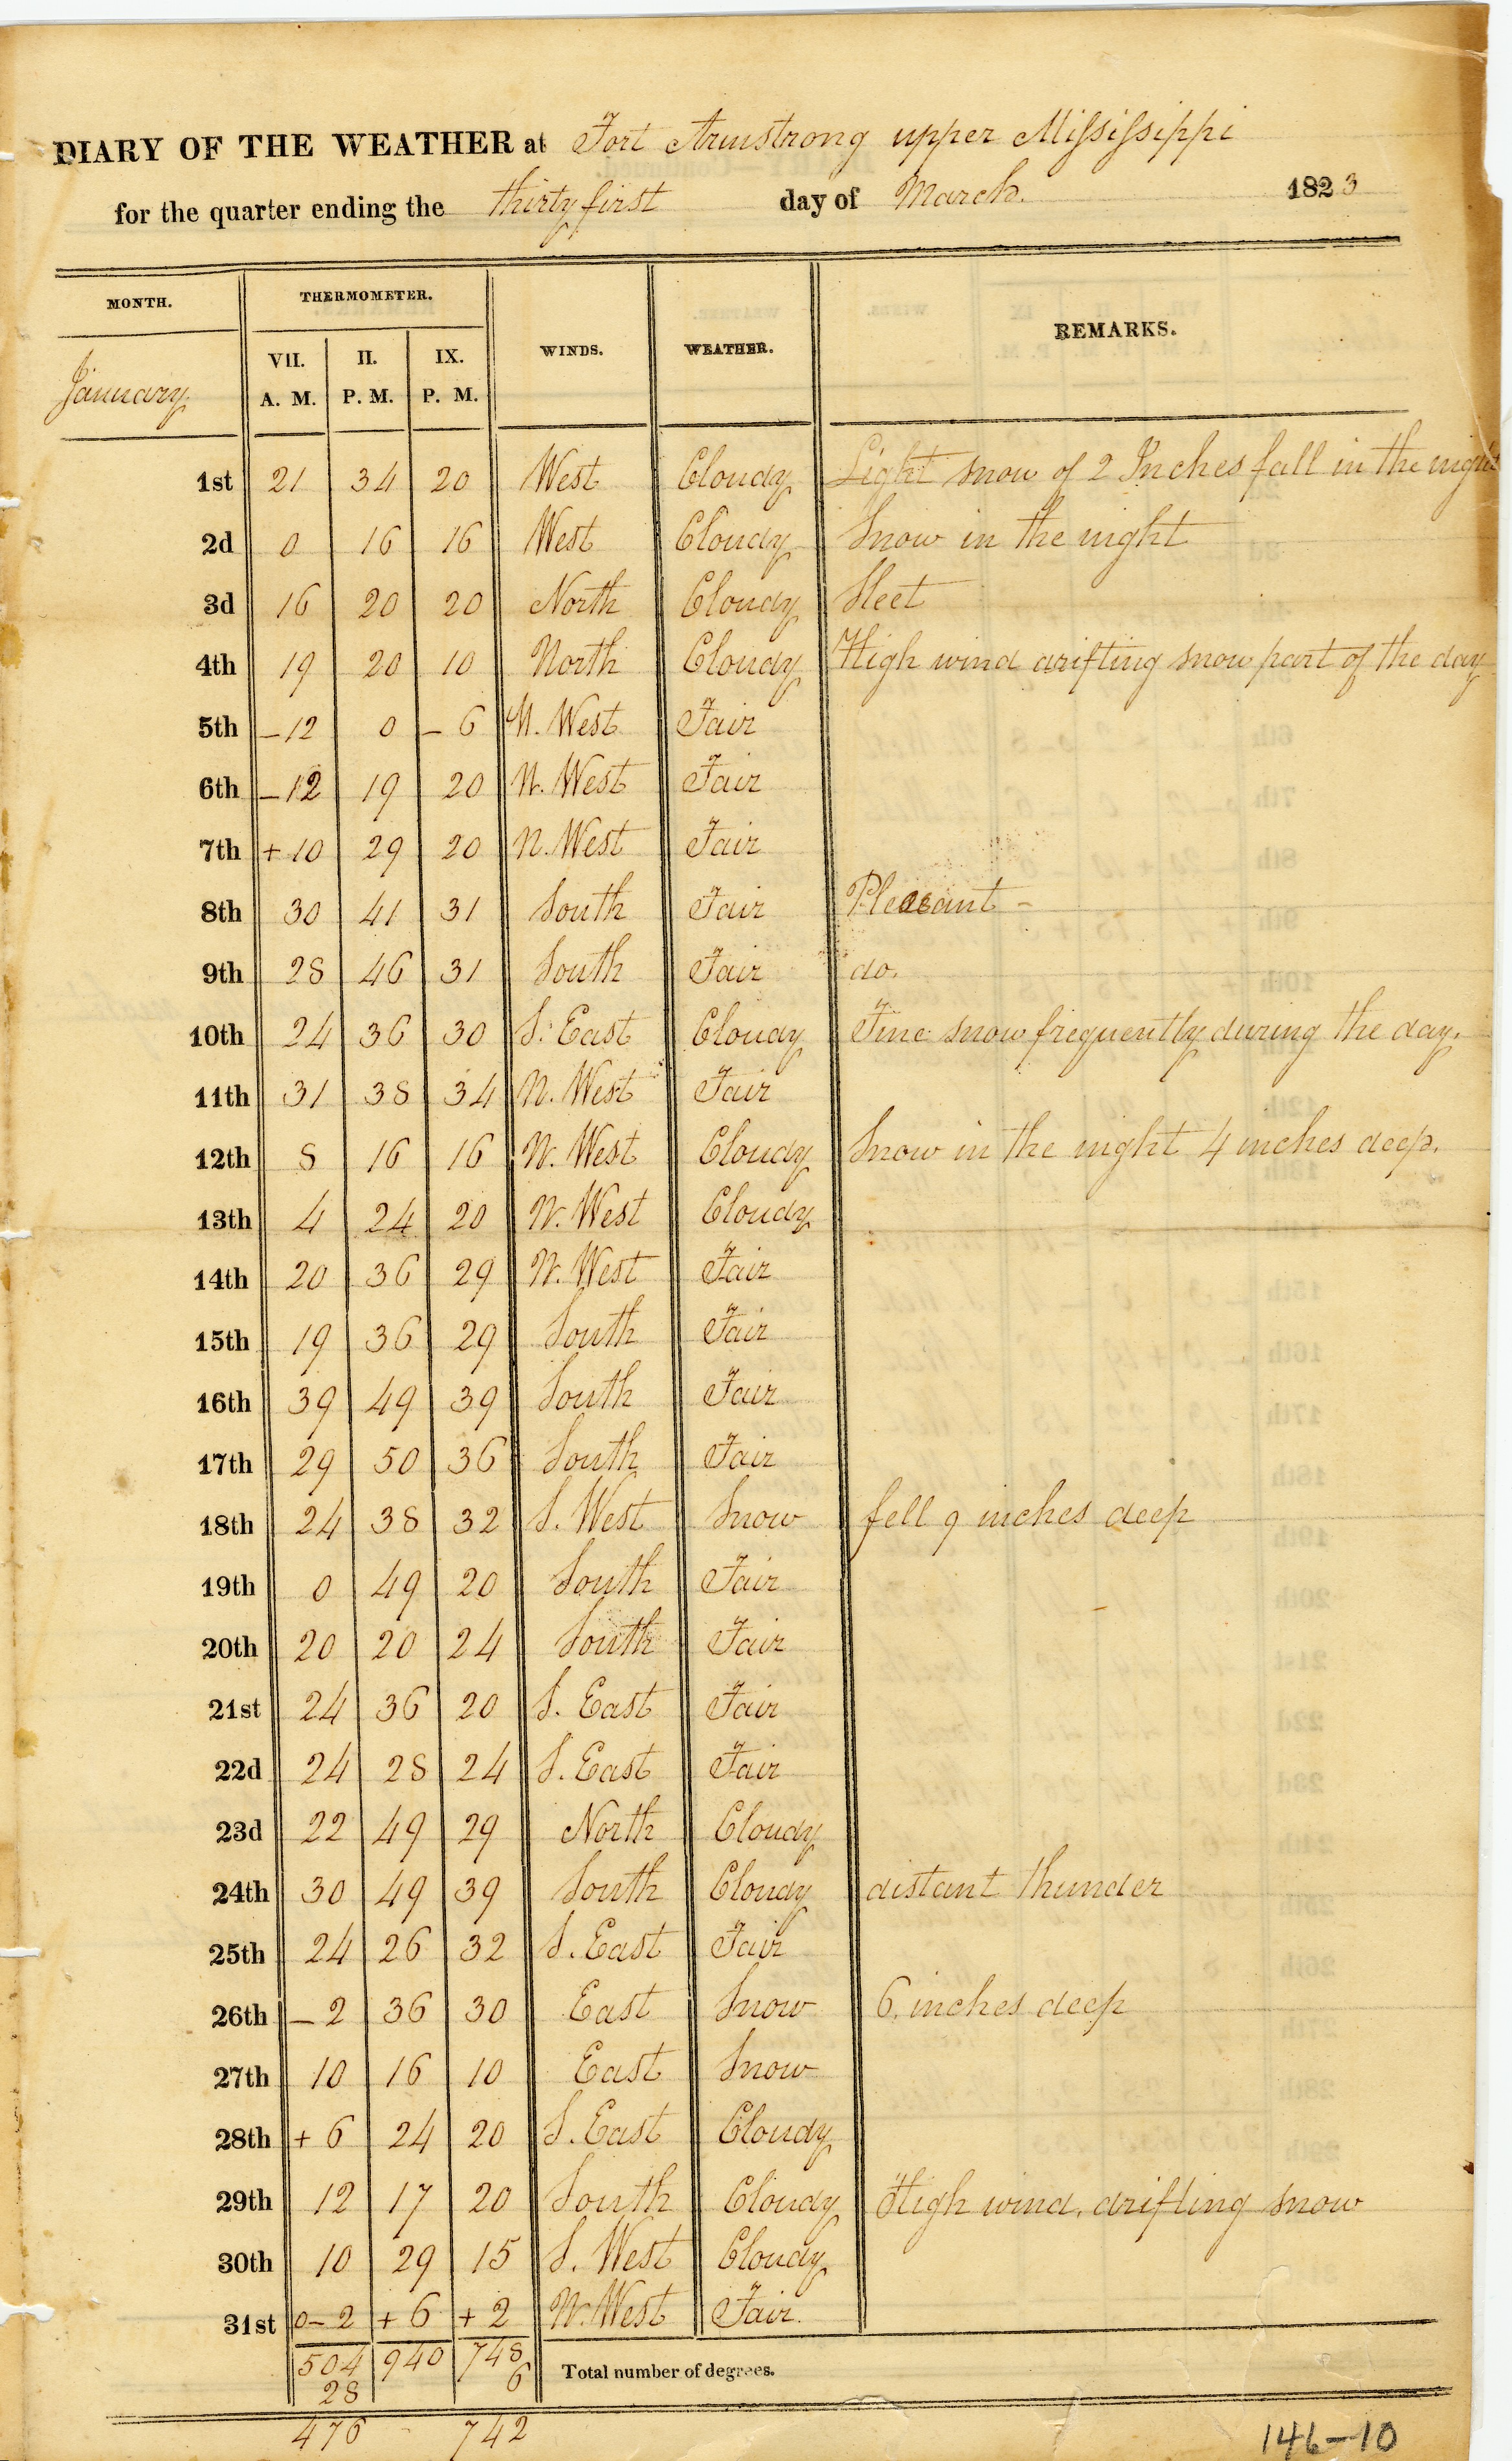 DIARY OF THE WEATHER at Fort Armstrong upper Mississippi
for the quarter ending the thirty first day of March. 1823
MONTH. THERMOMETER. WINDS. WEATHER. REMARKS.
January VII. A. M. II. P. M. IX. P. M.
1st 21 34 20 West Cloudy Light snow of 2 Inches fall in the night
2d 0 16 16 West Cloudy Snow in the night
3d 16 20 20 North Cloudy Sleet
4th 19 20 10 North Cloudy High wind drifting snow part of the day
5th -12 0 -6 N. West Fair
6th -12 19 20 N. West Fair
7th +10 29 20 N. West Fair
8th 30 41 31 South Fair Pleasant -
9th 28 46 31 South Fair do.
10th 24 36 30 S. East Cloudy Fine snow frequently during the day.
11th 31 38 34 N. West Fair
12th 8 16 16 N. West Cloudy Snow in the night 4 inches deep.
13th 4 24 20 N. West Cloudy
14th 20 36 29 N. West Fair
15th 19 36 29 South Fair
16th 39 49 39 South Fair
17th 29 50 36 South Fair
18th 24 38 32 S. West Snow fell 9 inches deep
19th 0 49 20 South Fair
20th 20 20 24 South Fair
21st 24 36 20 S. East Fair
22d 24 28 24 S. East Fair
23d 22 49 29 North Cloudy
24th 30 49 39 South Cloudy distant thunder
25th 24 26 32 S. East Fair
26th -2 36 30 East Snow 6. inches deep
27th 10 16 10 East Snow
28th +6 24 20 S. East Cloudy
29th 12 17 20 South Cloudy High wind. drifting snow
30th 10 29 15 S. West Cloudy
31st 0-2 +6 +2 N. West Fair.
504 940 748 Total number of degrees.
28 6
476 742
146-10